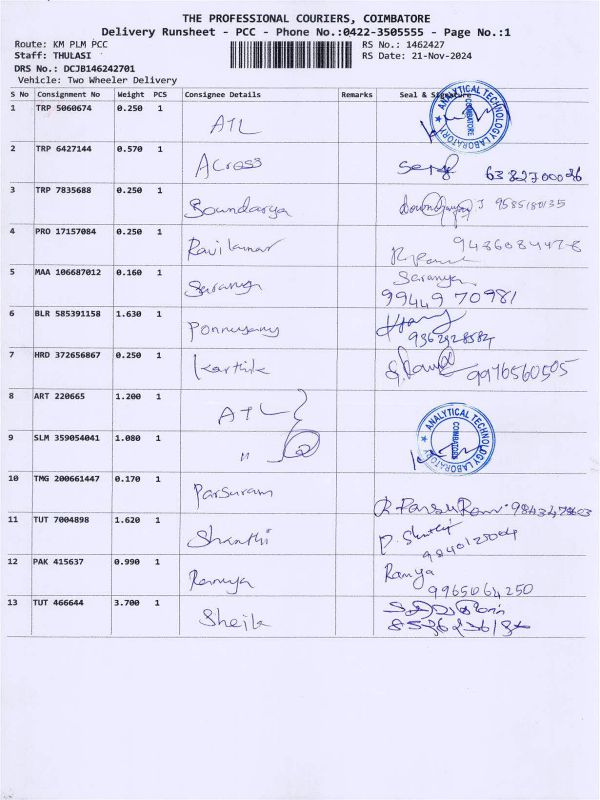 THE PROFESSIONAL COURIERS, COIMBATORE
Delivery Runsheet - PCC - Phone No.:0422-3505555 - Page No.:1
Route: KM PLM PCC RS No.: 1462427
Staff: THULASI RS Date: 21-Nov-2024
DRS No.: DCJB146242701
Vehicle: Two Wheeler Delivery
S No Consignment No Weight PCS Consignee Details Remarks Seal & Signature
1 TRP 5060674 0.250 1 ATL ANALYTICAL TECHNOLOGY LABORATORY COIMBATORE
2 TRP 6427144 0.570 1 Across
3 TRP 7835688 0.250 1 Soundarya
4 PRO 17157084 0.250 1 Ravikumar
5 MAA 106687012 0.160 1 Saranya Saranya
99449 70981
6 BLR 585391158 1.630 1 Ponnusamy
7 HRD 372656867 0.250 1 Karthik 9976560505
8 ART 220665 1.200 1 ATL ANALYTICAL TECHNOLOGY LABORATORY COIMBATORE
9 SLM 359054041 1.080 1 "
10 TMG 200661447 0.170 1 Parsuram
11 TUT 7004898 1.620 1 Shanthi
12 PAK 415637 0.990 1 Ramya Ramya
9965064250
13 TUT 466644 3.700 1 Sheila